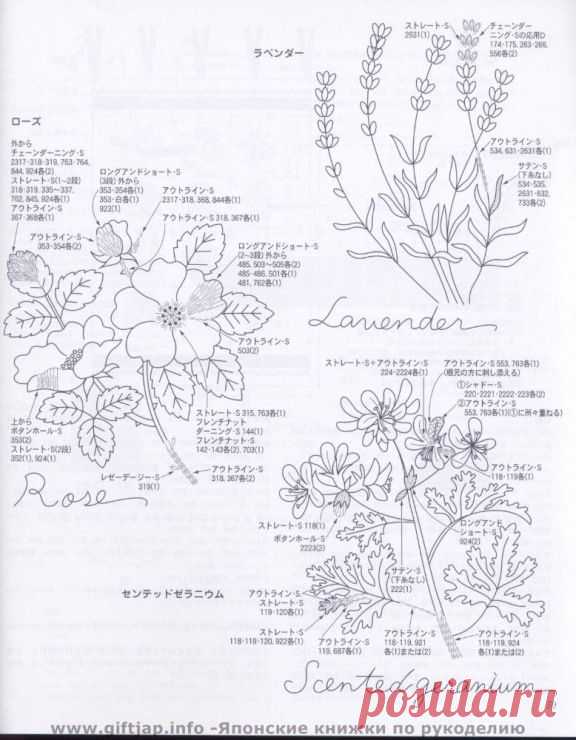 ラベンダー
ストレート・S
2631(1)
チェーンダー
ニング・Sの応用D
174・175、263・266、
556各(2)
アウトライン・S
534、631・2631各(1)
サテン・S
(下糸なし)
534・535、
2631・632、
733各(2)
Lavender
ローズ
外から
チェーンダーニング・S
2317・318・319、763・764、
844、924各(2)
ストレート・S(1〜2段)
318・319、335〜337、
762、845、924各(1)
アウトライン・S
367・368各(1)
アウトライン・S
353・354各(2)
ロングアンドショート・S
(3段) 外から
353・354各(1)
353・白各(1)
922(1)
アウトライン・S
2317・318、368、844各(1)
アウトライン・S 318、367各(1)
ロングアンドショート・S
(2〜3段) 外から
485、503〜505各(2)
485・486、501各(1)
481、762各(1)
アウトライン・S
503(2)
ストレート・S 315、763各(1)
フレンチナット
ダーニング・S 144(1)
フレンチナット・S
142・143各(2)、703(1)
上から
ボタンホール・S
353(2)
ストレート・S(2段)
352(1)、924(1)
レゼーデージー・S
319(1)
アウトライン・S
318、367各(2)
Rose
ストレート・S+アウトライン・S
224・2224各(1)
アウトライン・S 553、763各(1)
(根元の方に刺し添える)
①シャドー・S
220・2221・2222・223各(2)
②アウトライン・S
553、763各(1)(①に所々重ねる)
アウトライン・S
118・119各(1)
ストレート・S 118(1)
ボタンホール・S
2223(2)
ロングアンド
ショート・S
924(2)
サテン・S
(下糸なし)
222(1)
センテッドゼラニウム
アウトライン・S
ストレート・S
119・120各(1)
ストレート・S
118・119・120、922各(1)
アウトライン・S
119、687各(1)
アウトライン・S
118・119、921
各(1)または(2)
アウトライン・S
118・119、924
各(1)または(2)
Scented geranium
www.giftjap.info -Японские книжки по рукоделию
postila.ru